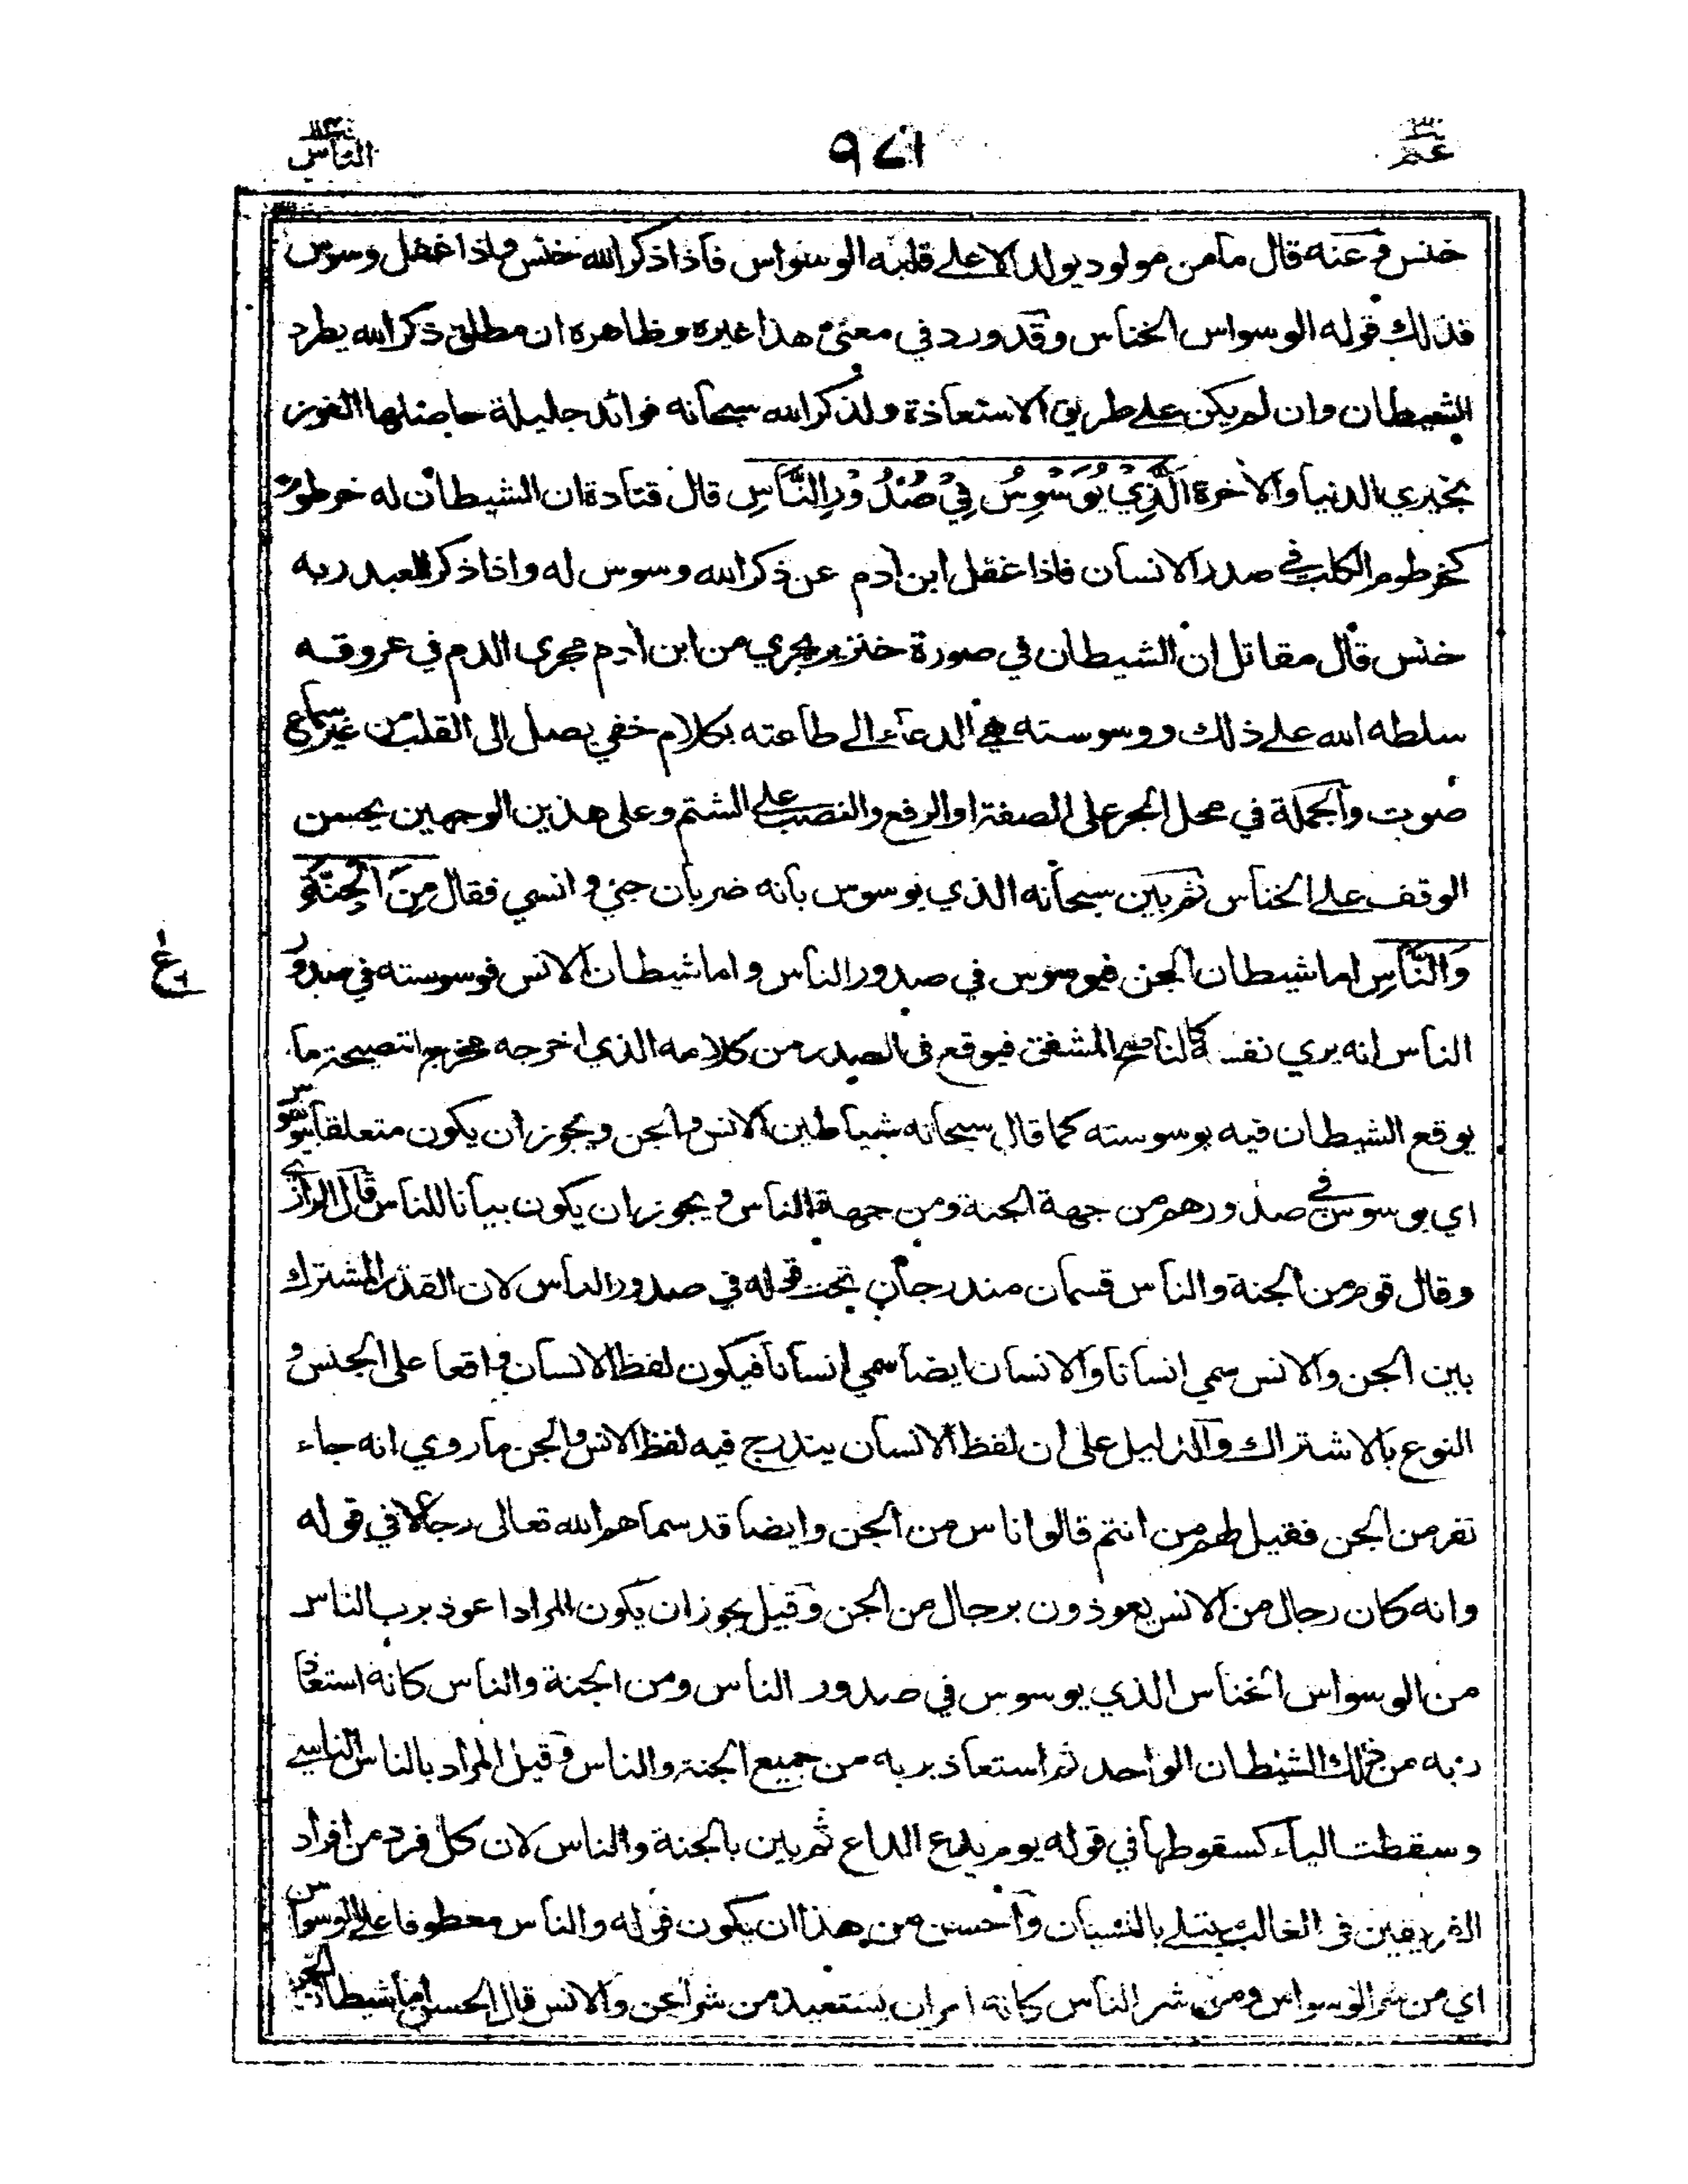 عم
٤٧١
الناس
خنس وعنه قال ما من مولود يولد الا على قلبه الوسواس فاذا ذكر الله خنس واذا غفل وسوس
فذلك قوله الوسواس الخناس وقد ورد في معنى هذا غيره وظاهره ان مطلق ذكر الله يطرد
الشيطان وان لم يكن على طريق الاستعاذة ولذكر الله سبحانه فوائد جليلة حاصلها الفوز
بخيري الدنيا والآخرة الَّذِي يُوَسْوِسُ فِيْ صُدُوْرِ النَّاسِ قال قتادة ان الشيطان له خرطوم
كخرطوم الكلب في صدر الانسان فاذا غفل ابن آدم عن ذكر الله وسوس له واذا ذكر العبد ربه
خنس قال مقاتل ان الشيطان في صورة خنزير يجري من ابن آدم مجرى الدم في عروقه
سلطه الله على ذلك ووسوسته هي الدعاء الى طاعته بكلام خفي يصل الى القلب من غير سماع
صوت والجملة في محل الجر على الصفة او الرفع والنصب على الشتم وعلى هذين الوجهين يحسن
الوقف على الخناس ثم بين سبحانه الذي يوسوس بأنه ضربان جني وانسي فقال مِنَ الْجِنَّةِ
وَالنَّاسِ اما شيطان الجن فيوسوس في صدور الناس واما شيطان الانس فوسوسته في صدور
الناس انه يري نفسه كالناصح المشفق فيوقع في الصدر من كلامه الذي اخرجه مخرج النصيحة ما
يوقع الشيطان فيه بوسوسته كما قال سبحانه شياطين الانس والجن ويجوز ان يكون متعلقا بيوسوس
اي يوسوس في صدورهم من جهة الجنة ومن جهة الناس ويجوز ان يكون بيانا للناس قال الرازي
وقال قوم من الجنة والناس قسمان مندرجان تحت قوله في صدور الناس لان القدر المشترك
بين الجن والانس سمي انسانا والانسان ايضا سمي انسانا فيكون لفظ الانسان واقعا على الجنس و
النوع بالاشتراك والدليل على ان لفظ الانسان يندرج فيه لفظ الانس والجن ما روي انه جاء
نفر من الجن فقيل لهم من انتم قالوا اناس من الجن وايضا قد سماهم الله تعالى رجالا في قوله
وانه كان رجال من الانس يعوذون برجال من الجن وقيل يجوز ان يكون المراد اعوذ برب الناس
من الوسواس الخناس الذي يوسوس في صدور الناس ومن الجنة والناس كانه استعاذ
ربه من ذلك الشيطان الواحد ثم استعاذ بربه من جميع الجنة والناس وقيل المراد بالناس الناسي
وسقطت الياء كسقوطها في قوله يوم يدع الداع ثم بين بالجنة والناس لان كل فرد من افراد
الفريقين في الغالب يبتلى بالنسيان وأحسن من هذا ان يكون قوله والناس معطوفا على الوسواس
اي من شر الوسواس ومن شر الناس كانه امر ان يستعيذ من شر الجن والانس قال الحسن اما شيطان الجن
ع